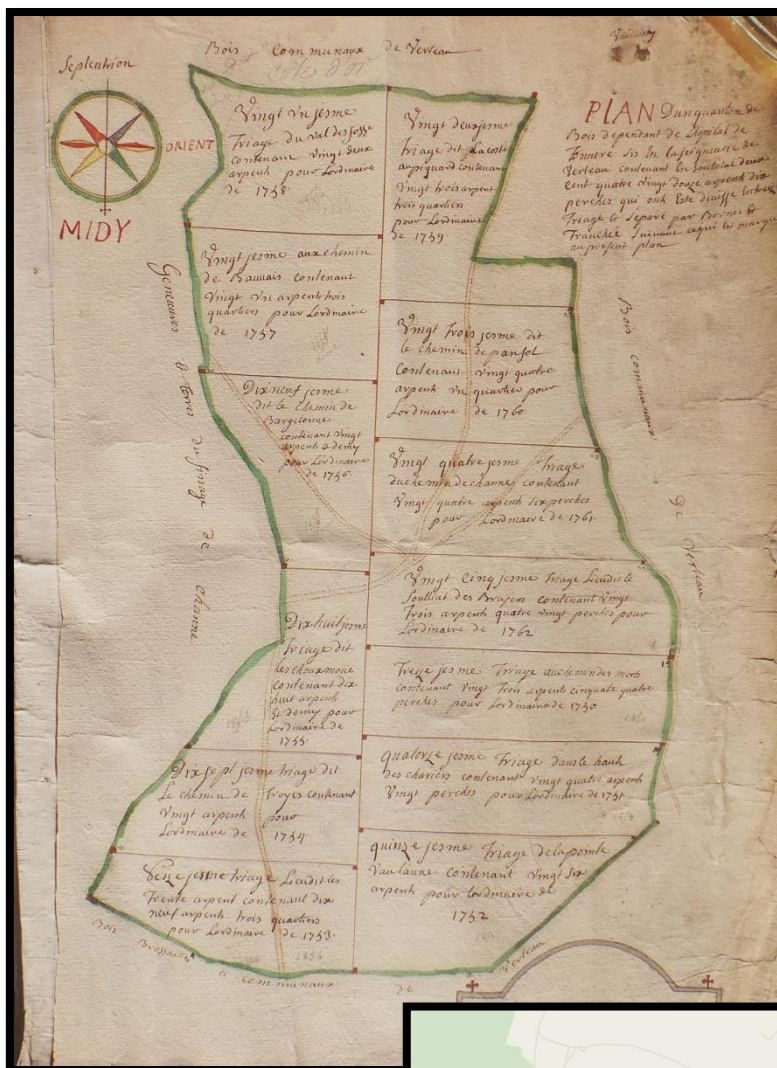 Vauduley
Bois Communaux de Verteau
Côte d'or
Septentrion
ORIENT
MIDY
PLAN Dun quanton de
Bois dependant de Lopital de
Tonnere Sis En la seigneurie de
Verteau contenant En Son total deux
cent quatre vingt douze arpents dix
perches qui ont Este divisse
Triage et Separé par Bornes et
Tranchée Suivant
au present plan
Vingt Vn jesme
Triage du Val des fosse
contenant vingt deux
arpents pour Lordinaire
de 1758.
Vingt deuxjesme
Triage dit Lacoste
apiquard contenant
Vingt trois arpent
trois quartiers
pour Lordinaire
de 1759
Vingt jesme aux chemin
de Bauvais contenant
Vingt Vn arpents trois
quartiers pour Lordinaire
de 1757
Vingt Trois jesme dit
le chemin de pansol
Contenant vingt quatre
arpents Vn quartier pour
Lordinaire de 1760
Dix neuf jesme
dit le chemin de
Bargelonne
contenant Vingt
arpents & demy
pour Lordinaire
de 1756
Vingt quatre jesme Triage
du chemin de channe contenant
Vingt quatre arpents Six perches
pour Lordinaire de 1761
Vingt Cinq jesme Triage Lieudit le
Soulliat des Brayers contenant Vingt
Trois arpents quatre Vingt perches pour
Lordinaire de 1762
Dix huit jesme
triage dit
les chouxmone
contenant dix
huit arpents
& demy pour
Lordinaire de
1755
Treize jesme Triage au chemin des mors
contenant Vingt Trois arpent cinquate quatre
perches pour Lordinaire de 1750
Dix sept jesme triage dit
Le chemin de troyes contenant
Vingt arpents pour
Lordinaire de 1754
quatorze jesme Triage dans le haut
des chariers contenant Vingt quatre arpents
Vingt perches pour Lordinaire de 1751
Seize jesme triage Lieudit les
Trente arpent contenant dix
neuf arpents trois quartiers
pour Lordinaire de 1753.
1854
quinze jesme Triage de la pointe
Vaulanne contenant Vingt Six
arpents pour Lordinaire de
1752
Genevaires & terres du finage de
Bois communaux de Verteau
Bois Brossailles & communaux de Verteau